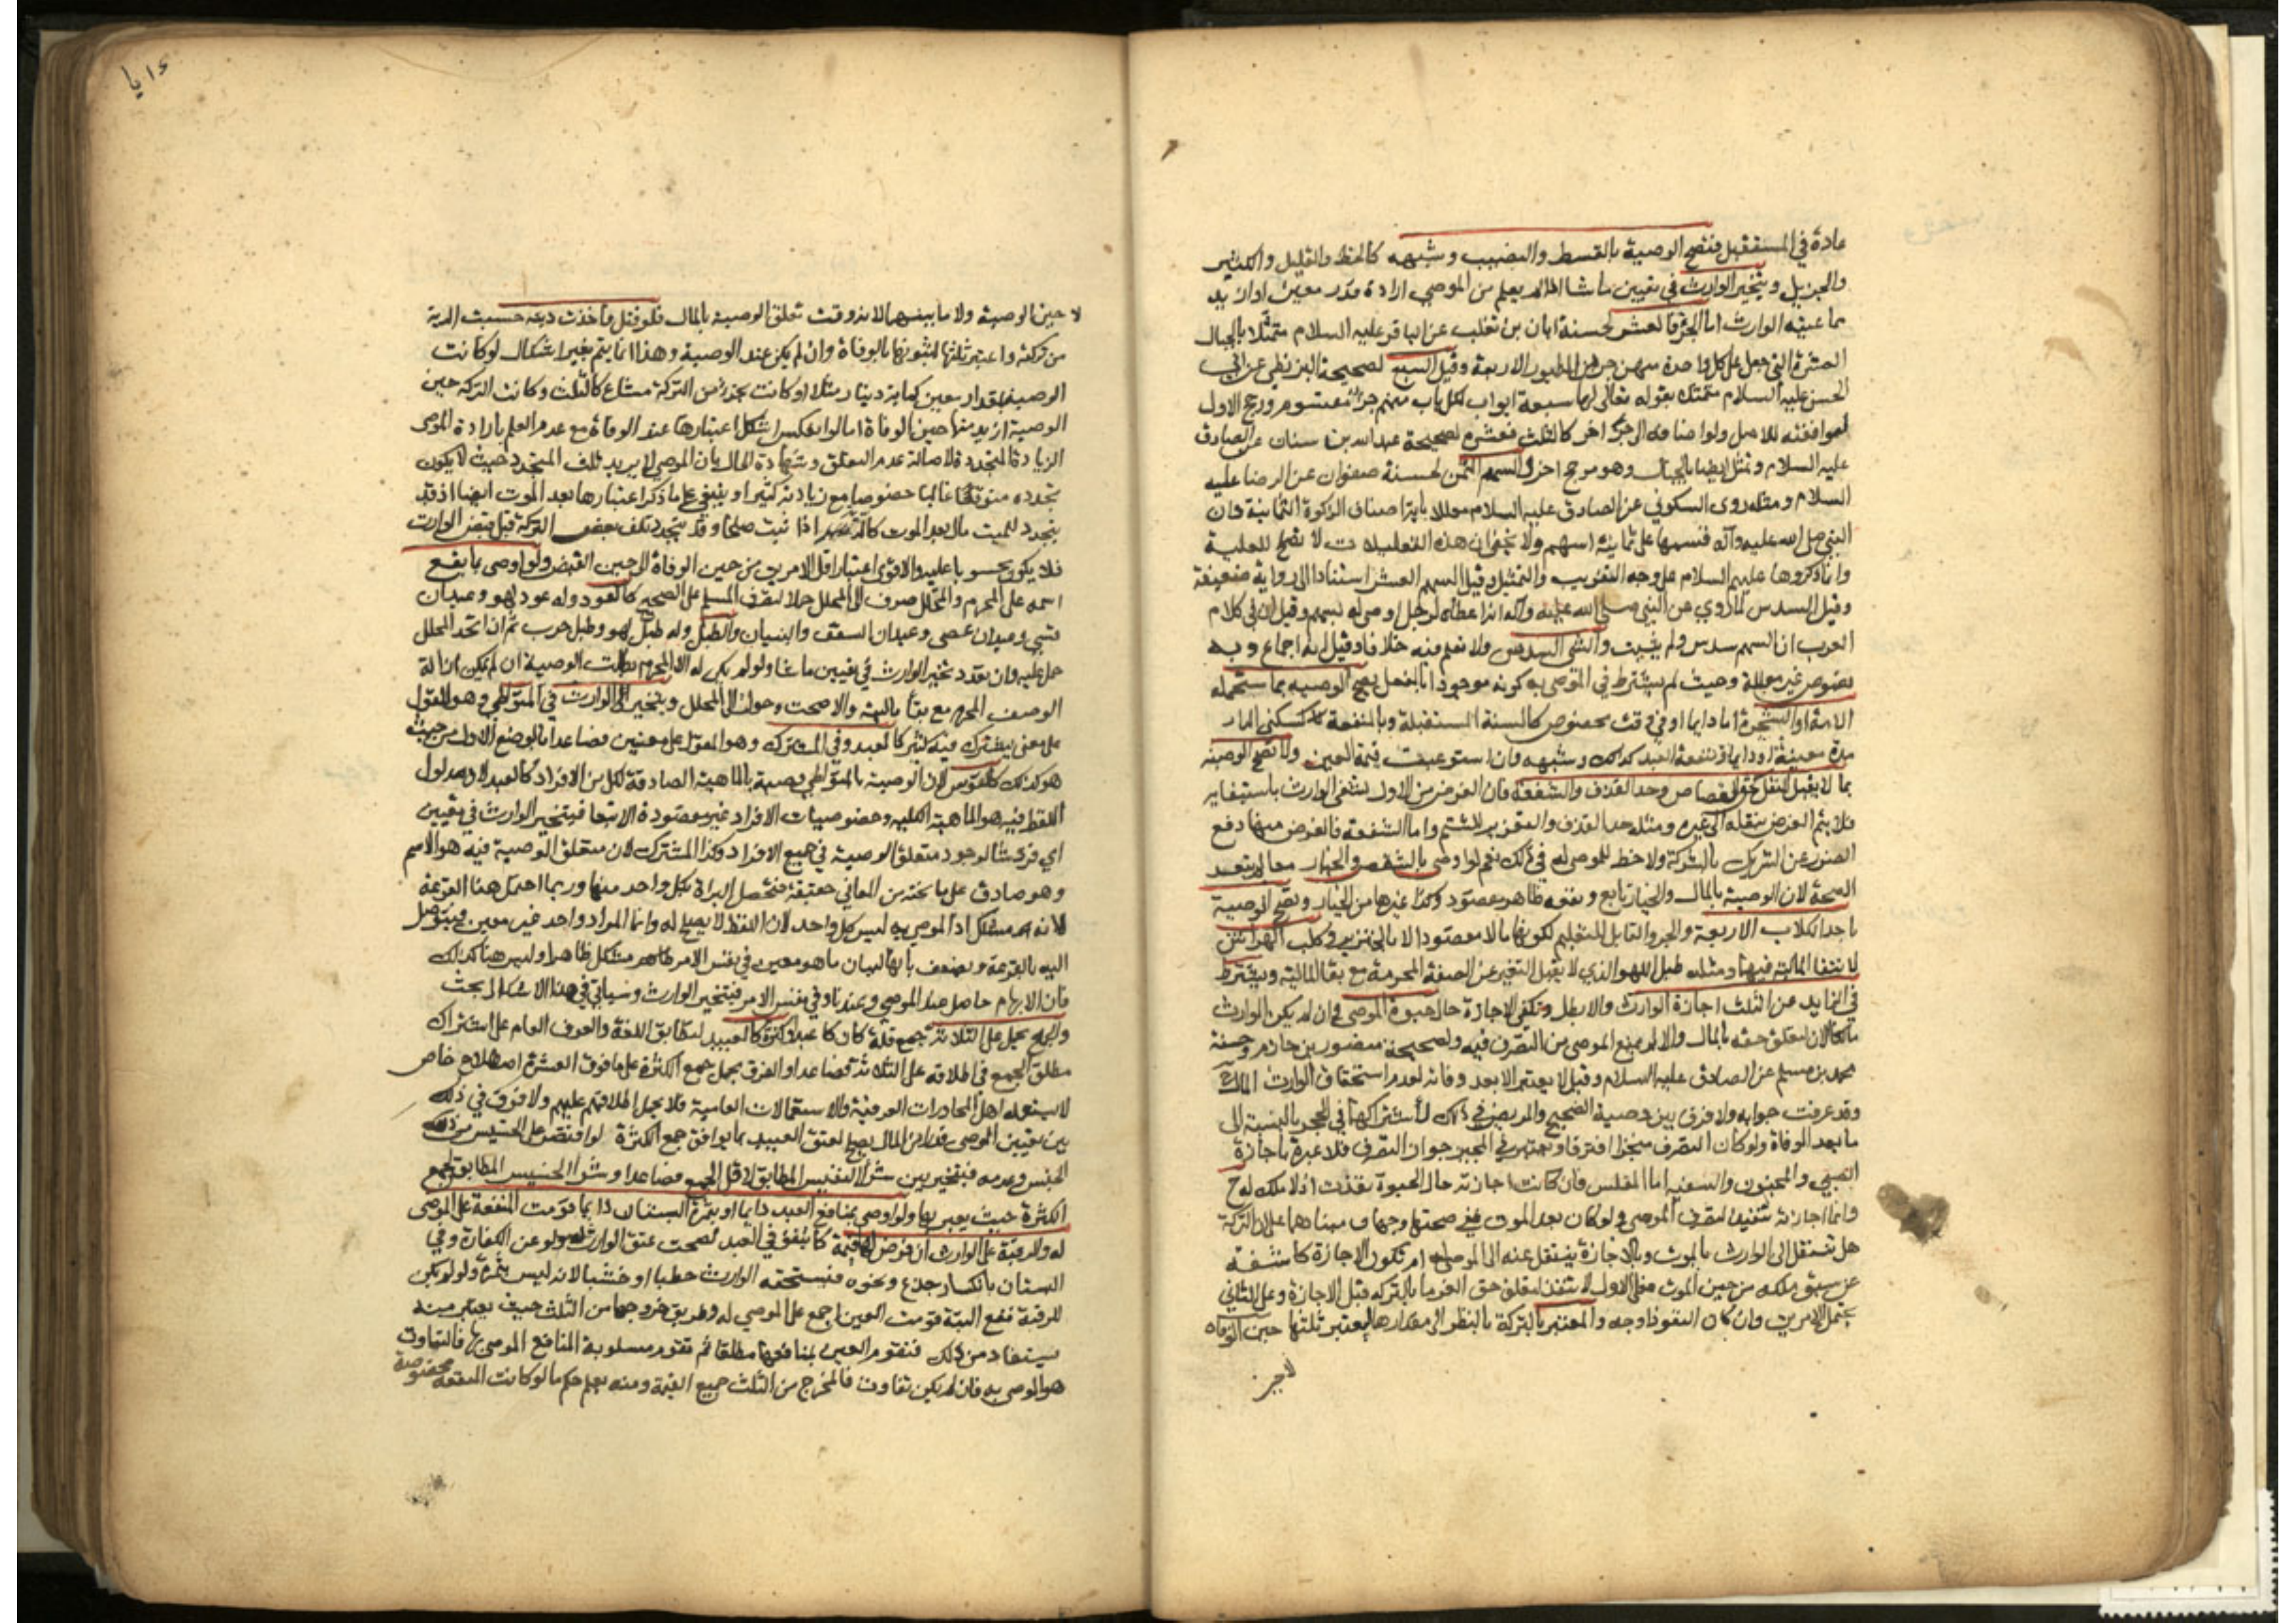 عادة في المستقبل فتصح الوصية بالقسط والنصيب وشبهه كالحظ والقليل والكثير
والجزيل ويتخير الوارث في تعيين ما شا اذا لم يعلم من الموصي ارادة قدر معين او ازيد
مما عينه الوارث اما الجزء فالعشر لحسنة ابان بن تغلب عن الباقر عليه السلام متمثلا بالجبال
العشرة التي جعل على كل واحدة منهن جزء من الطيور الاربعة وقيل السبع لصحيحة البزنطي عن ابي
الحسن عليه السلام متمثلا بقوله تعالى لها سبعة ابواب لكل باب منهم جزء مقسوم ورجح الاول
لموافقته للاصل ولو اضافه الى جزء اخر كالثلث فعشره لصحيحة عبدالله بن سنان عن الصادق
عليه السلام وتمثل ايضا بالجبال وهو مرجح اخر والسهم الثمن لحسنة صفوان عن الرضا عليه
السلام ومثله روى السكوني عن الصادق عليه السلام معللا باية اصناف الزكوة الثمانية فان
النبي صلى الله عليه وآله قسمها على ثمانية اسهم ولا يخفى ان هذه التعليلات لا تصلح للعلية
وانما ذكروها عليهم السلام على وجه التقريب والتمثيل وقيل السهم العشر استنادا الى رواية ضعيفة
وقيل السدس لما روي عن النبي صلى الله عليه وآله انه اعطاه لرجل اوصى له بسهم وقيل ان في كلام
العرب ان السهم سدس ولم يثبت والشي السدس ولا نعلم فيه خلافا وقيل انه اجماع وبه
نصوص غير معللة وحيث لم يشترط في الموصى به كونه موجودا بالفعل تصح الوصية بما ستحمله
الامة او الشجرة اما دايما او في وقت مخصوص كالسنة المستقبلة وبالمنفعة كسكنى الدار
مدة معينة او دايما ومنفعة العبد كذلك وشبهه وان استوعبت قيمة العين ولا تصح الوصية
بما لا يقبل النقل كحق القصاص وحد القذف والشفعة فان الغرض من الاول تشفي الوارث باستيفايه
فلا يتم الغرض بنقله الى غيره ومثله حد القذف والتعزير للشتم واما الشفعة فالغرض منها دفع
الضرر عن الشريك بالشركة ولا حظ للموصى له في ذلك نعم لو اوصى بالشقص والخيار معا لم يبعد
الصحة لان الوصية بالمال والخيار تابع ونفعه ظاهر مقصود وكذا غيرها من الخيار وتصح الوصية
باحد الكلاب الاربعة والجرو القابل للتعليم لكونها مالا مقصودا لا بالخنزير وكلب الهراش
لانتفا المالية فيهما ومثله طبل اللهو الذي لا يقبل التغيير عن الصفة المحرمة مع بقا المالية ويشترط
في الزايد عن الثلث اجازة الوارث والا بطل وتكفي الاجازة حال حيوة الموصي وان لم يكن الوارث
مالكا الان لتعلق حقه بالمال والا لم يمنع الموصي من التصرف فيه ولصحيحة منصور بن حازم وحسنة
محمد بن مسلم عن الصادق عليه السلام وقيل لا يعتبر الا بعد وفاته لعدم استحقاق الوارث المال ح
وقد عرفت جوابه ولا فرق بين وصية الصحيح والمريض في ذلك لاشتراكهما في الحجر بالنسبة الى
ما بعد الوفاة ولو كان التصرف منجزا افترقا ويعتبر في المجيز جواز التصرف فلا عبرة باجازة
الصبي والمجنون والسفيه اما المفلس فان كانت اجازته حال الحيوة نفذت اذ لا ملك له ح
وانما اجازته تنفيذ لتصرف الموصي ولو كان بعد الموت ففي صحتها وجهان مبناهما على ان التركة
هل تنتقل الى الوارث بالموت وبالاجازة ينتقل عنه الى الموصى له ام تكون الاجازة كاشفة
عن سبق ملكه من حين الموت فعلى الاول لا تنفذ لتعلق حق الغرما بالتركة قبل الاجازة وعلى الثاني
يحتمل الامرين وان كان النفوذ اوجه والمعتبر بالتركة بالنظر الى مقدارها ليعتبر ثلثها حين الوفاة
لا حين
لا حين الوصية ولا ما بينهما لانه وقت تعلق الوصية بالمال فلو قتل فاخذت ديته حسبت الدية
من تركته واعتبر ثلثها لثبوتها بالوفاة وان لم يكن عند الوصية وهذا انما يتم بغير اشكال لو كانت
الوصية بمقدار معين كماية دينار مثلا او كانت بجزء من التركة مشاع كالثلث وكانت التركة حين
الوصية ازيد منها حين الوفاة اما لو انعكس اشكل اعتبارها عند الوفاة مع عدم العلم بارادة الموصي
الزيادة المتجددة لاصالة عدم التعلق وشهادة الحال بان الموصي لا يريد ثلث المتجدد حيث لا يكون
تجدده متوقعا غالبا خصوصا مع زيادته كثيرا وينبغي على ما ذكر اعتبارها بعد الموت ايضا اذ قد
يتجدد للميت مال بعد الموت كالدية اذا ثبت صلحا وقد يتجدد تلف بعض التركة قبل قبض الوارث
فلا يكون محسوبا عليه والاقوى اعتبار اقل الامرين من حين الوفاة الى حين القبض ولو اوصى بما يقع
اسمه على المحرم والمحلل صرف الى المحلل حملا لتصرف المسلم على الصحيح كالعود وله عود لهو وعيدان
قسي وعيدان عصي وعيدان السقف والبنيان والطبل وله طبل لهو وطبل حرب ثم ان اتحد المحلل
حمل عليه وان تعدد تخير الوارث في تعيين ما شا ولو لم يكن له الا المحرم بطلت الوصية ان لم يمكن ازالة
الوصف المحرم مع بقا ماليته والا صحت وحول الى المحلل ويتخير الوارث في المتواطي وهو المقول
على معنى يشترك فيه كثير كالعبد وفي المشترك وهو المقول على معنيين فصاعدا بالوضع الاول من حيث
هو كذلك كالقوس لان الوصية بالمتواطي وصية بالماهية الصادقة لكل من الافراد كالعبد لان مدلول
اللفظ فيه هو الماهية الكلية وخصوصيات الافراد غير مقصودة الا تبعا فيتخير الوارث في تعيين
اي فرد شا لوجود متعلق الوصية في جميع الافراد وكذا المشترك لان متعلق الوصية فيه هو الاسم
وهو صادق على ما تحته من المعاني حقيقة فتحصل البراة بكل واحد منها وربما احتمل هنا القرعة
لانه امر مشكل اذ الموصى به ليس كل واحد لان اللفظ لا يصلح له وانما المراد واحد غير معين فيتوصل
اليه بالقرعة ويضعف بانها لبيان ما هو معين في نفس الامر مشكل ظاهرا وليس هنا كذلك
فان الابهام حاصل عند الموصي وعندنا وفي نفس الامر فيتخير الوارث وسياتي في هذا الاشكال بحث
والجمع يحمل على الثلاثة جمع قلة كان كاعبد او كثرة كالعبيد لتطابق اللغة والعرف العام على اشتراك
مطلق الجمع في اطلاقه على الثلاثة فصاعدا والفرق بحمل جمع الكثرة على ما فوق العشرة اصطلاح خاص
لا يستعمله اهل المحاورات العرفية والاستعمالات العامية فلا يحمل اطلاقهم عليهم ولا فرق في ذلك
بين تعيين الموصي قدرا من المال يصلح لعتق العبيد بما يوافق جمع الكثرة لو اقتصر على الخسيس من ذلك
الجنس وعدمه فيتخير بين شرا النفيس المطابق لاقل الجمع فصاعدا وشرا الخسيس المطابق لجمع
الكثرة حيث يعبر بها ولو اوصى بمنافع العبد دايما او بثمرة البستان دايما قومت المنفعة على الموصى
له والرقبة على الوارث ان فرض لها قيمة كما يتفق في العبد لصحت عتق الوارث له ولو عن الكفارة وفي
البستان بانكسار جذع ونحوه فيستحقه الوارث حطبا او خشبا لانه ليس بثمرة ولو لم يكن
للرقبة نفع البتة قومت العين اجمع على الموصى له وطريق خروجها من الثلث حيث يعتبر منه
يستفاد من ذلك فتقوم العين بمنافعها مطلقا ثم تقوم مسلوبة المنافع الموصى بها فالتفاوت
هو الموصى به فان لم يكن تفاوت فالمخرج من الثلث جميع القيمة ومنه يعلم حكم ما لو كانت المنفعة مخصوصة